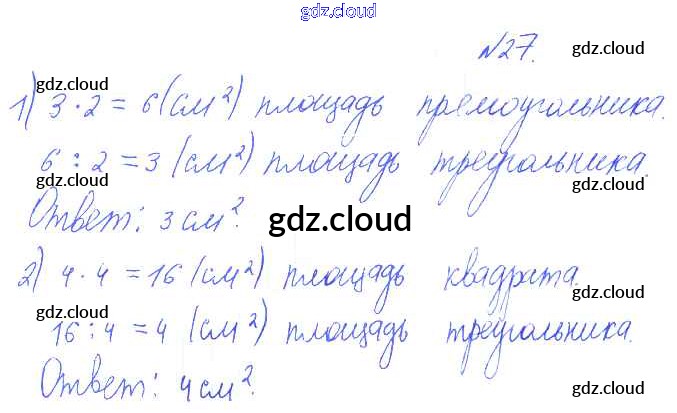 gdz.cloud
gdz.cloud
№27. gdz.cloud
gdz.cloud
1) 3 · 2 = 6 (см²) площадь прямоугольника.
gdz.cloud
6 : 2 = 3 (см²) площадь треугольника.
gdz.cloud gdz.cloud
Ответ: 3 см². gdz.cloud
gdz.cloud
2) 4 · 4 = 16 (см²) площадь квадрата.
gdz.cloud
gdz.cloud
16 : 4 = 4 (см²) площадь треугольника.
Ответ: 4 см².
gdz.cloud
gdz.cloud